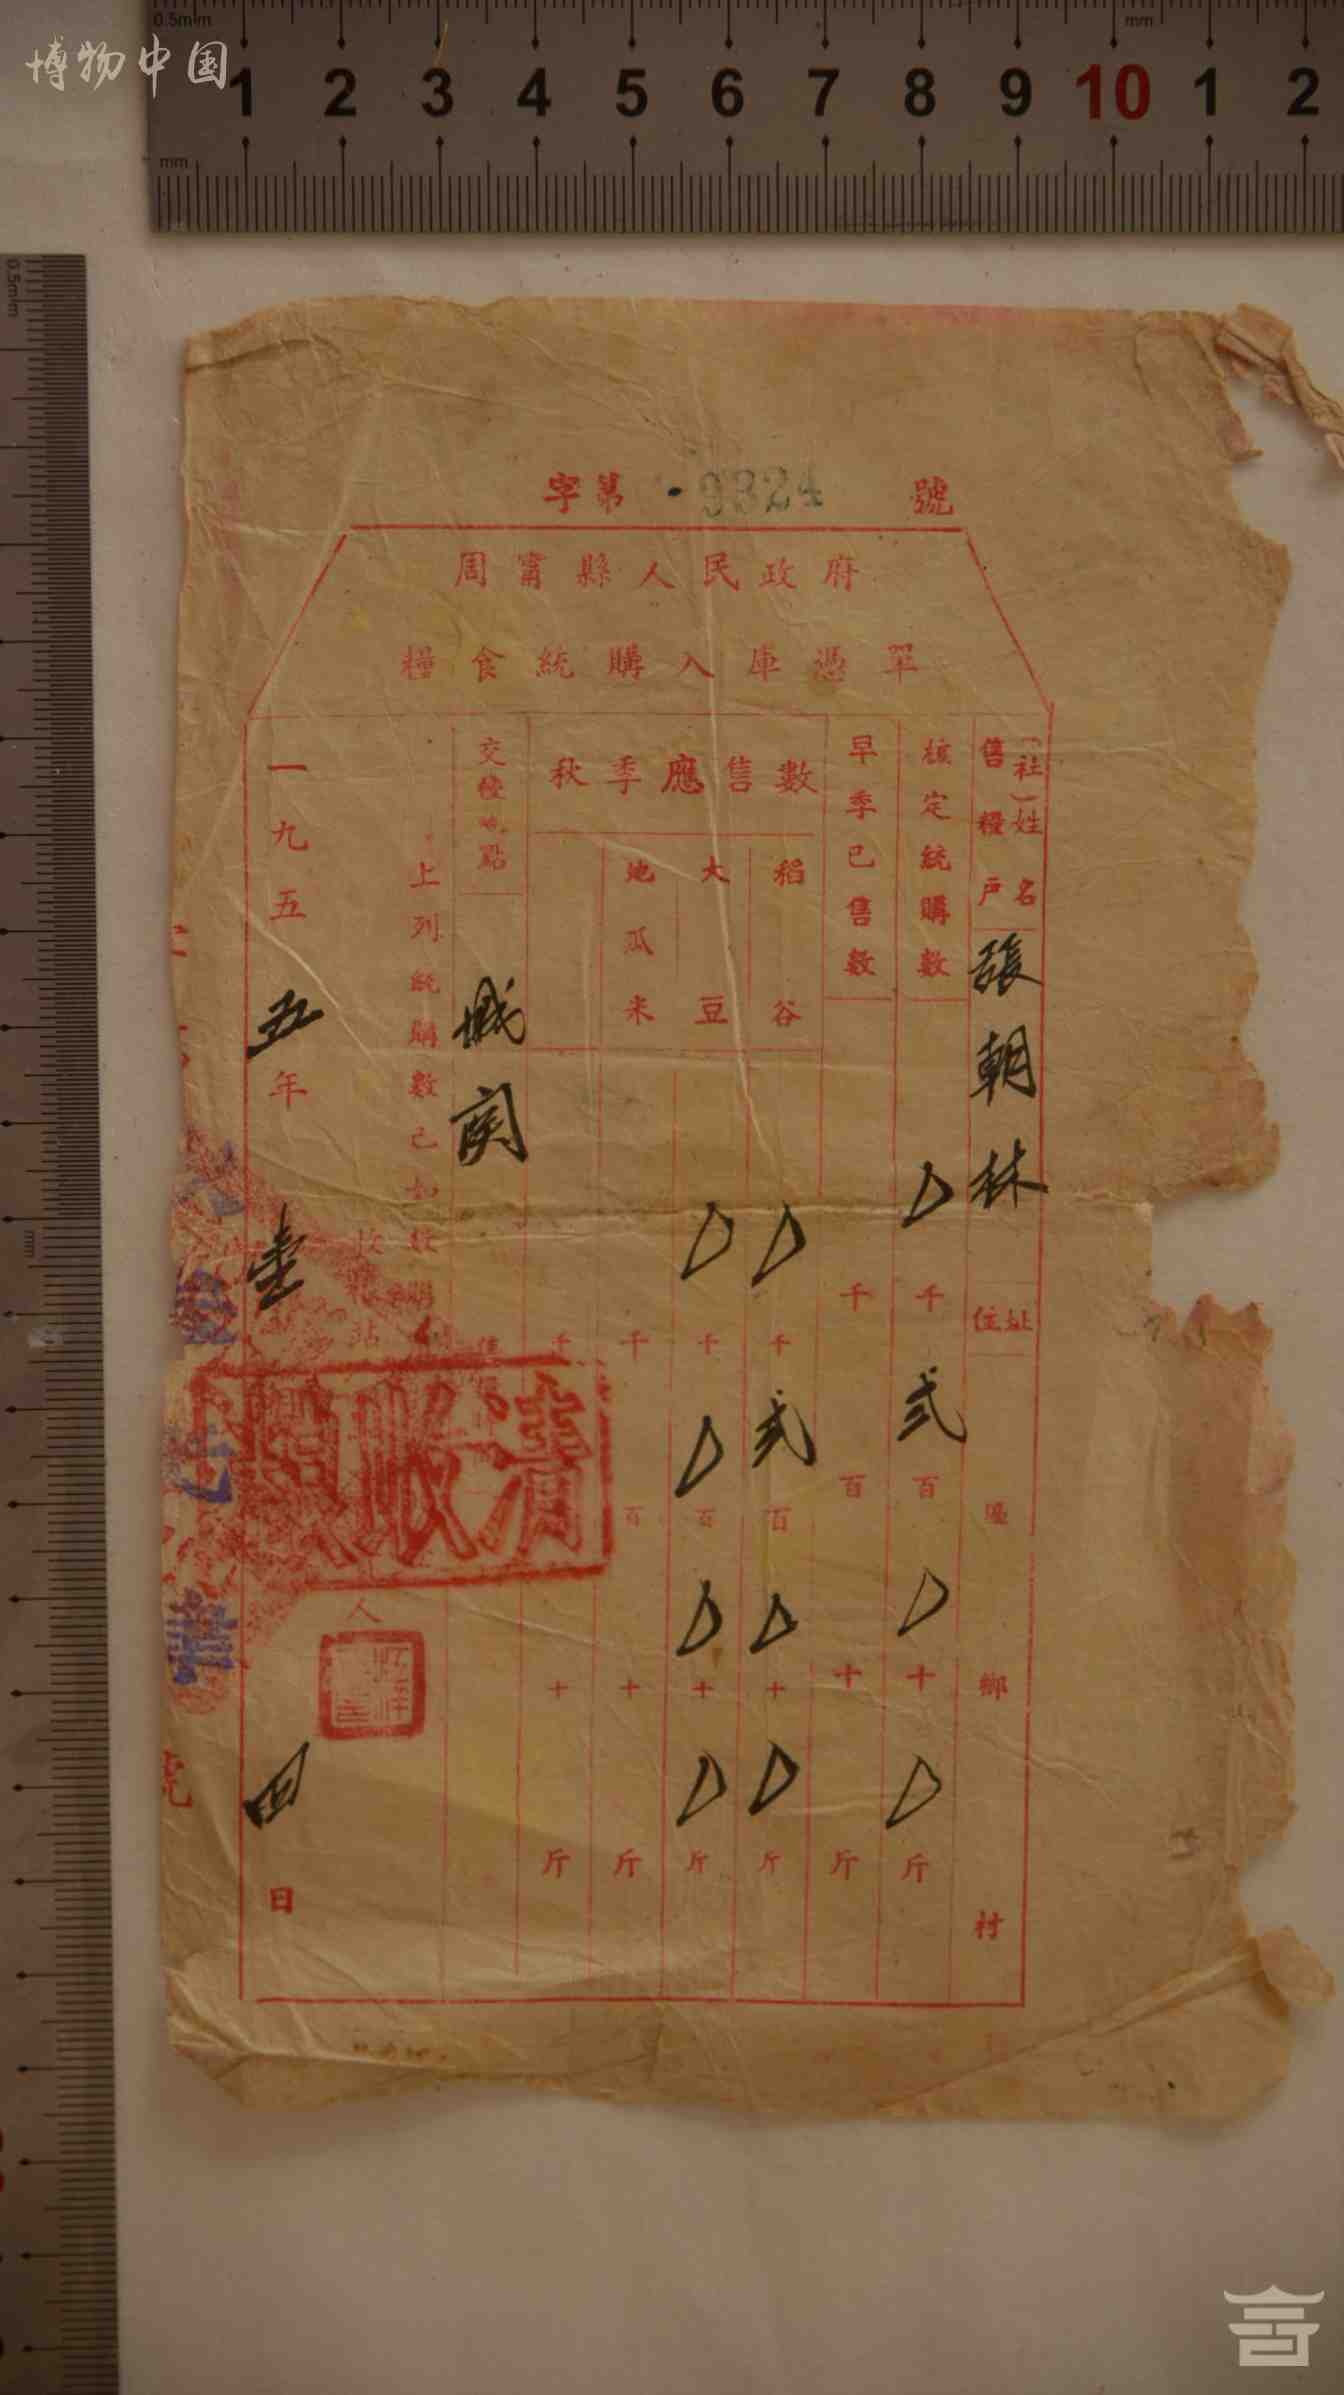 博物中国
0.5mm
mm
1 2 3 4 5 6 7 8 9 10 1 2
mm
0.5mm
mm
字第 9324 號
周甯縣人民政府
糧食統購入庫憑單
售糧戶
(社)姓名
張朝林
住址
區 鄉 村
核定統購數
△千弍百△十△斤
早季已售數
千百十斤
秋季應售數
稻谷
△千弍百△十△斤
大豆
△千△百△十△斤
地瓜米
千百十斤
千 十斤
交糧地點
城関
上列統購數已如數
收 站
人
清收
一九五五年 壹 四日
號